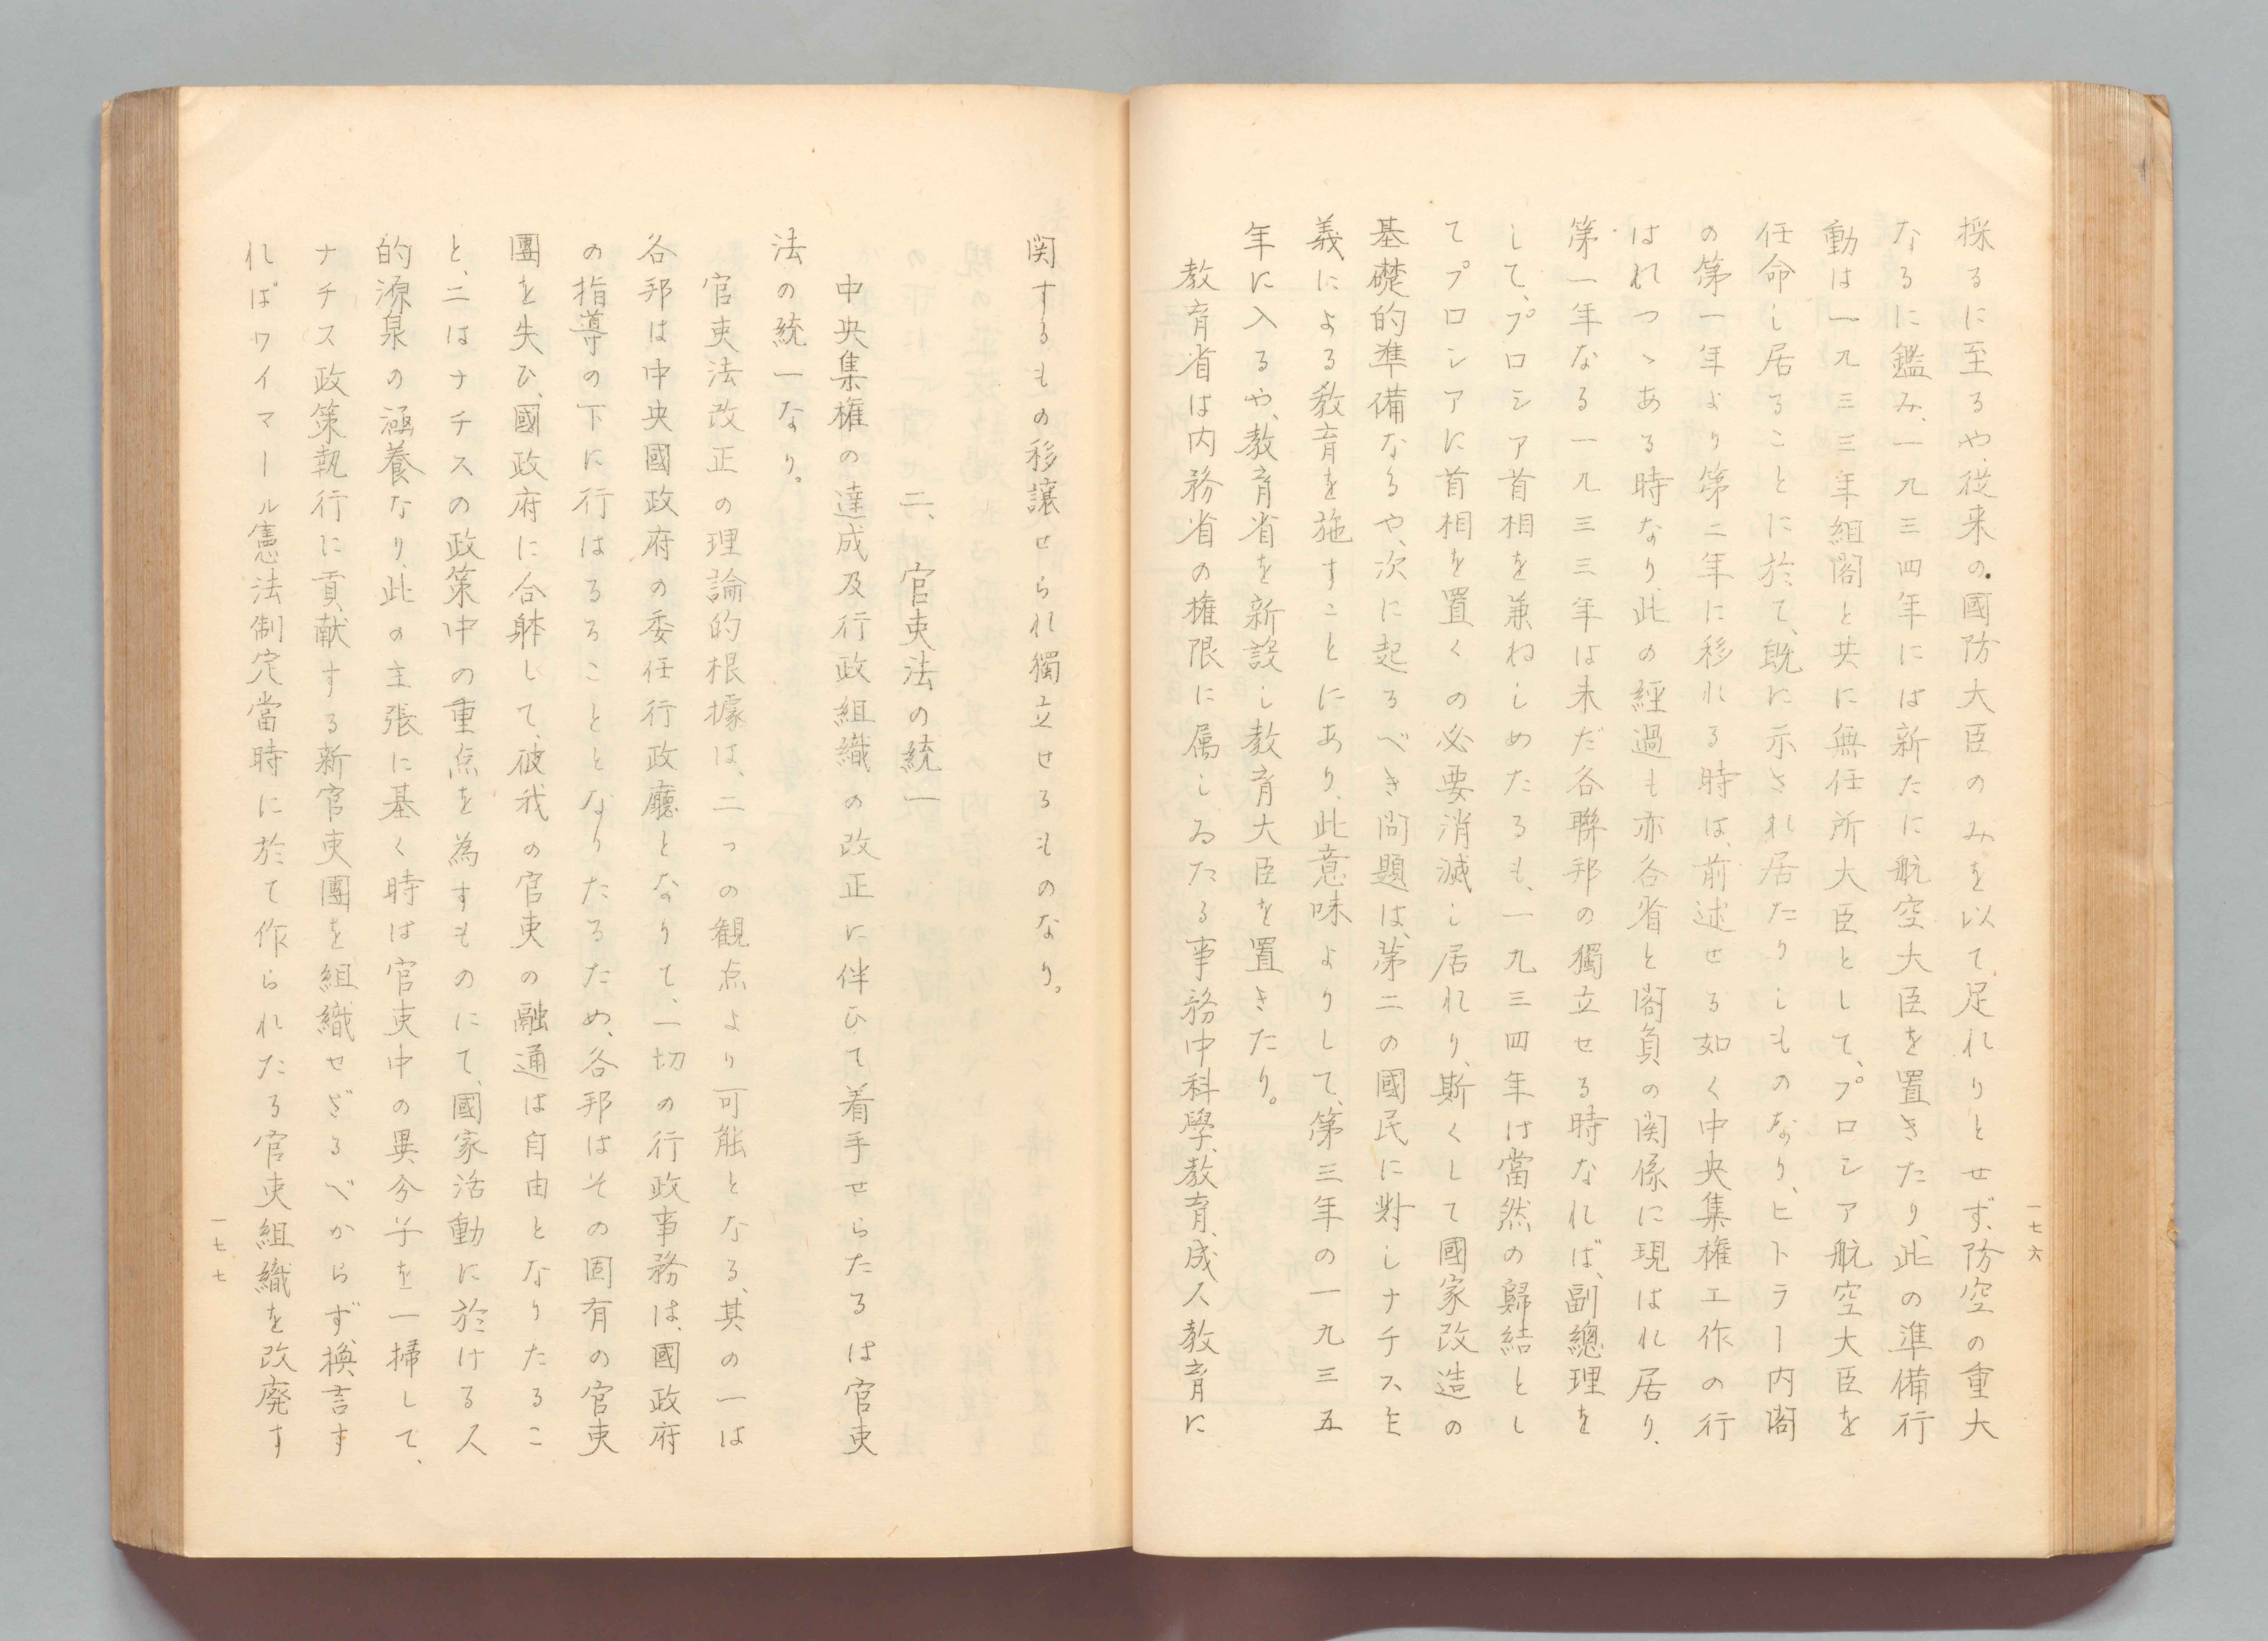 採るに至るや、從来の國防大臣のみを以て足れりとせず、防空の重大
なるに鑑み、一九三四年には新たに航空大臣を置きたり、此の準備行
動は一九三三年組閣と共に無任所大臣として、プロシア航空大臣を
任命し居ることに於て、既に示され居たりしものなり、ヒトラー内閣
の第一年より第二年に移れる時は、前述せる如く中央集権工作の行
はれつゝある時なり、此の經過も亦各省と閣員の関係に現はれ居り、
第一年なる一九三三年は未だ各聯邦の獨立せる時なれば、副總理を
して、プロシア首相を兼ねしめたるも、一九三四年は當然の歸結とし
てプロシアに首相を置くの必要消滅し居れり、斯くして國家改造の
基礎的準備なるや、次に起るべき問題は、第二の國民に對しナチス主
義による教育を施すことにあり、此意味よりして、第三年の一九三五
年に入るや、教育省を新設し教育大臣を置きたり。
教育省は内務省の権限に属しゐたる事務中科學、教育、成人教育に
一七六
関するもの移讓せられ獨立せるものなり。
二、官吏法の統一
中央集権の達成及行政組織の改正に伴ひて着手せらたるは官吏
法の統一なり。
官吏法改正の理論的根據は、二つの観点より可能となる、其の一は
各邦は中央國政府の委任行政廳となりて、一切の行政事務は、國政府
の指導の下に行はるることとなりたるため、各邦はその固有の官吏
團を失ひ、國政府に合躰して、彼我の官吏の融通は自由となりたるこ
と、二はナチスの政策中の重点を為すものにて、國家活動に於ける人
的源泉の涵養なり、此の主張に基く時は官吏中の異分子を一掃して、
ナチス政策執行に貢献する新官吏團を組織せざるべからず、換言す
ればワイマール憲法制定當時に於て作られたる官吏組織を改廃す
一七七